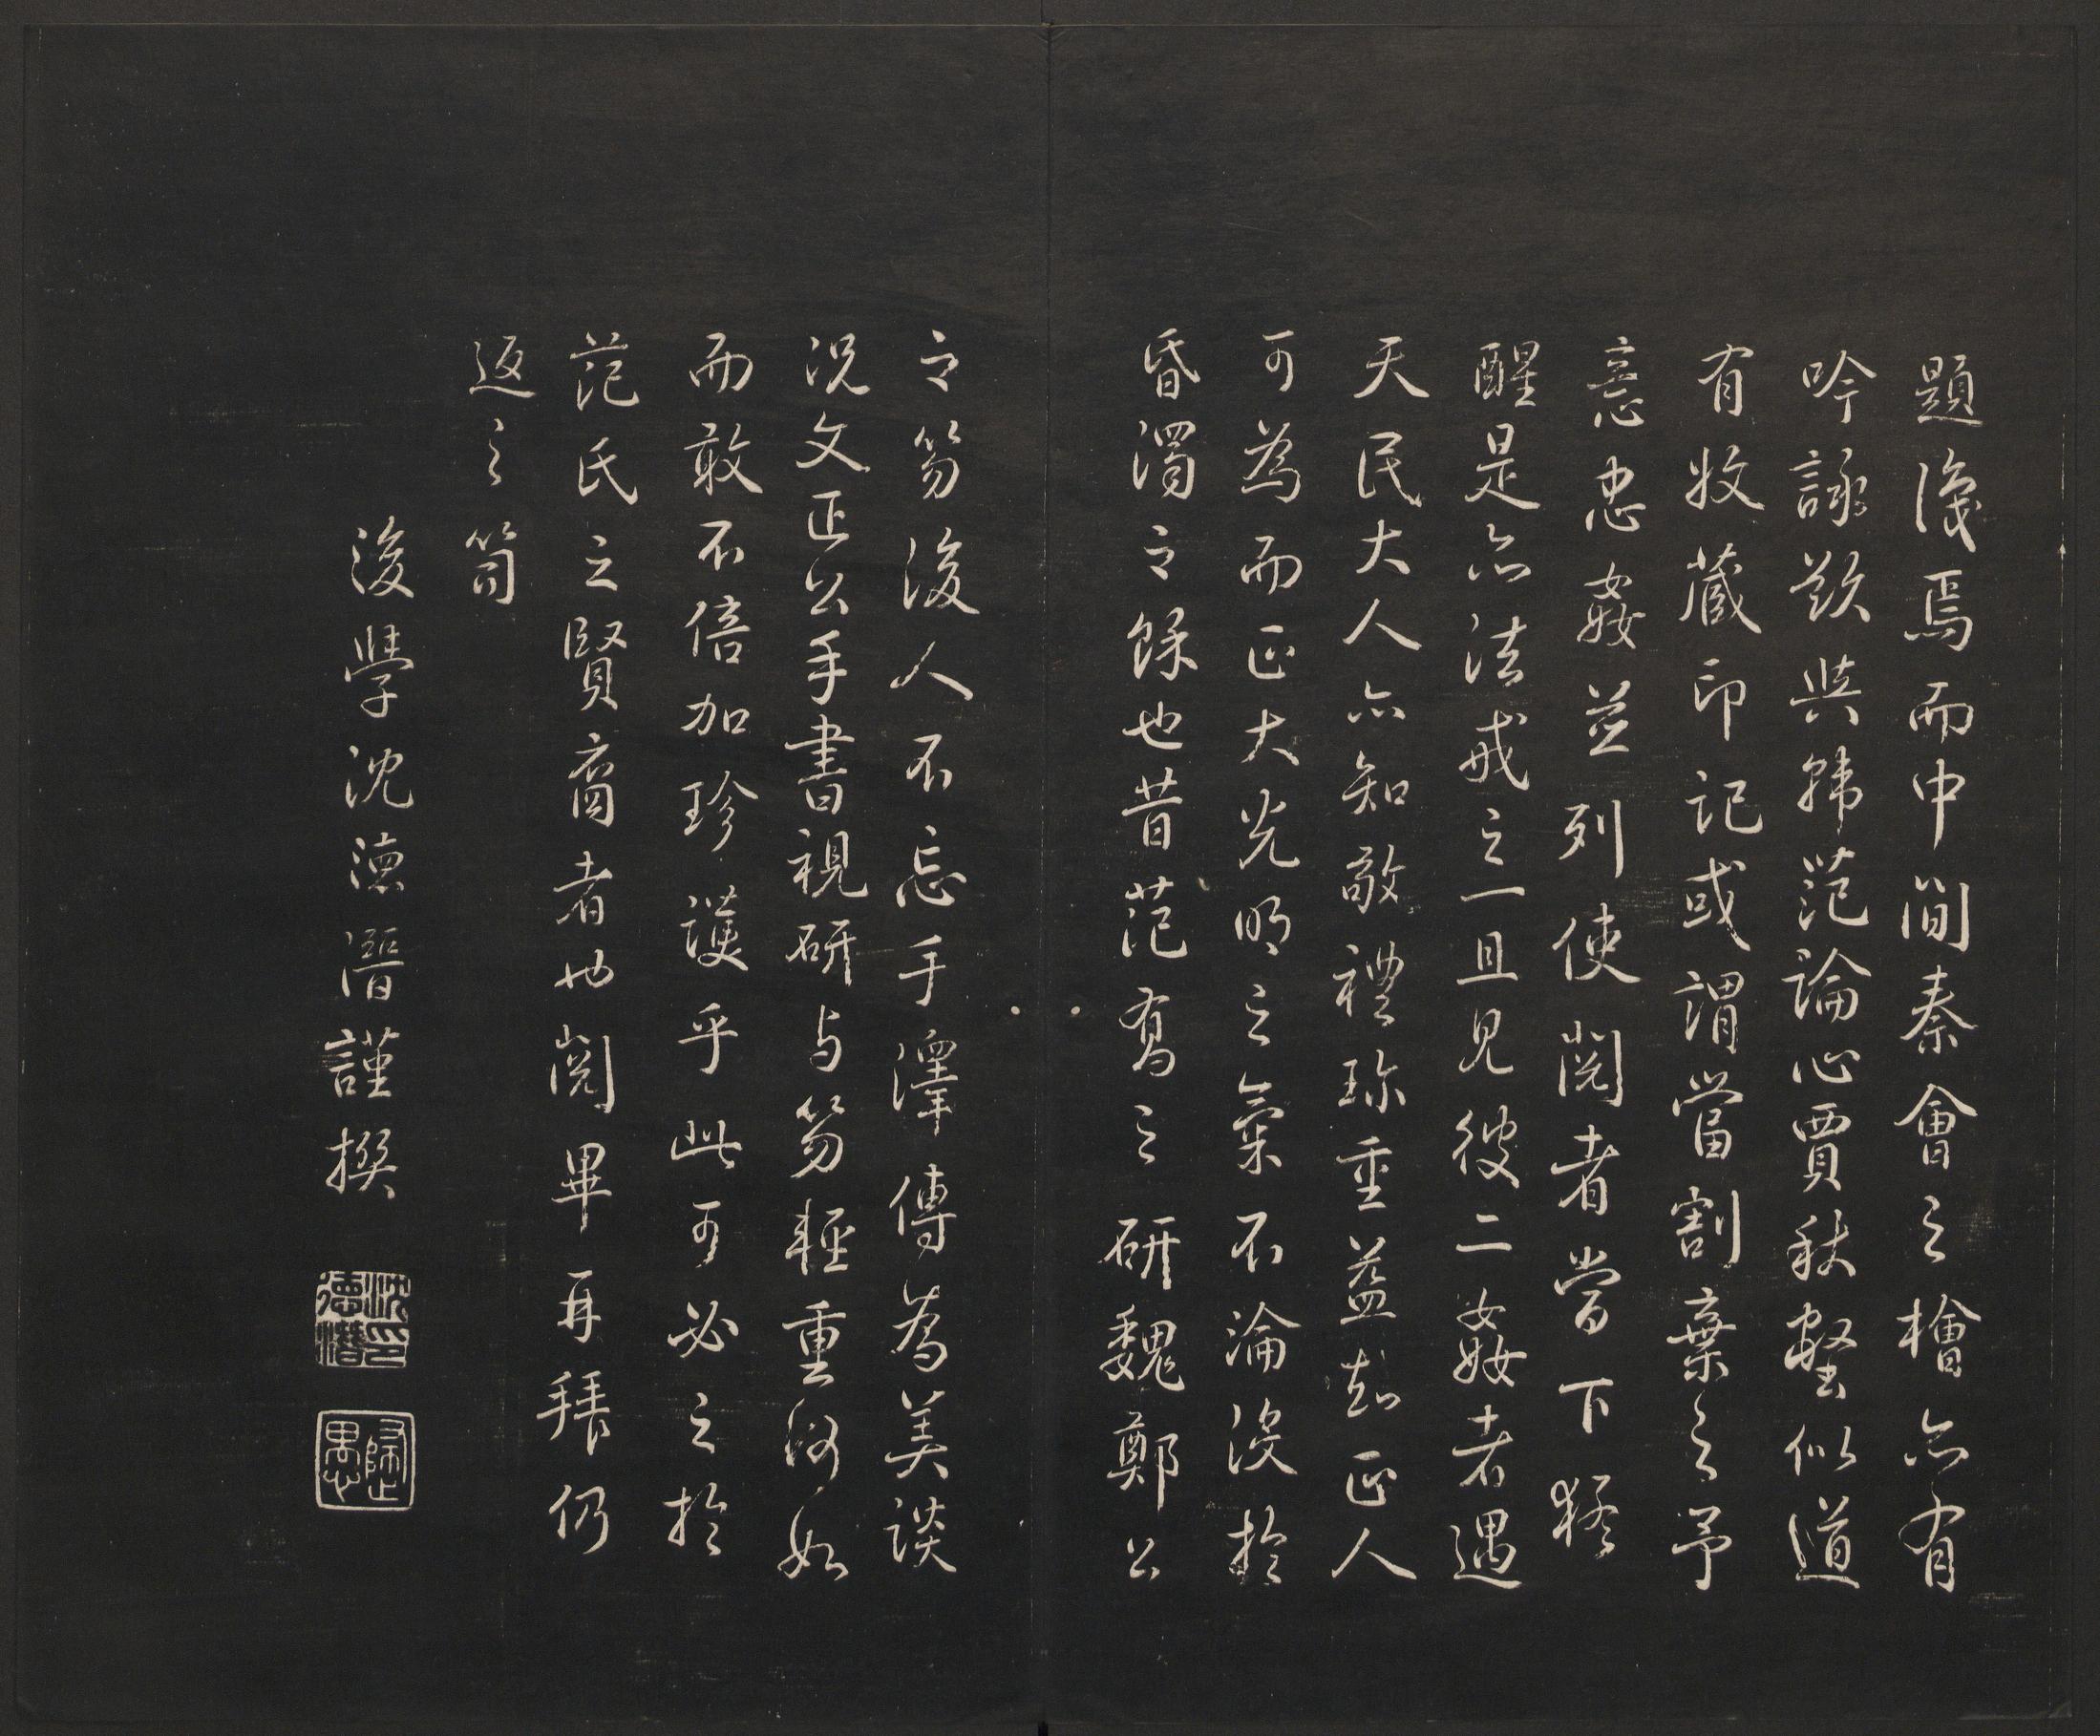 題後焉而中間秦會之檜亦有
吟詠欵與韓范論心賈秋壑似道
有收藏印記或謂當割棄之予
意忠姦並列使閱者當下猛
醒是亦法戒之一且見彼二姦者遇
天民大人亦知敬禮珍重益知正人
可為而正大光明之氣不淪沒於
昏濁之餘也昔范喬之研魏鄭公
之笏後人不忘手澤傳為美談
況文正公手書視研与笏輕重何如
而敢不倍加珍護乎此可必之於
范氏之賢裔者也閱畢再拜仍
返之笥
後學沈德潛謹撰
沈德潛印
歸愚